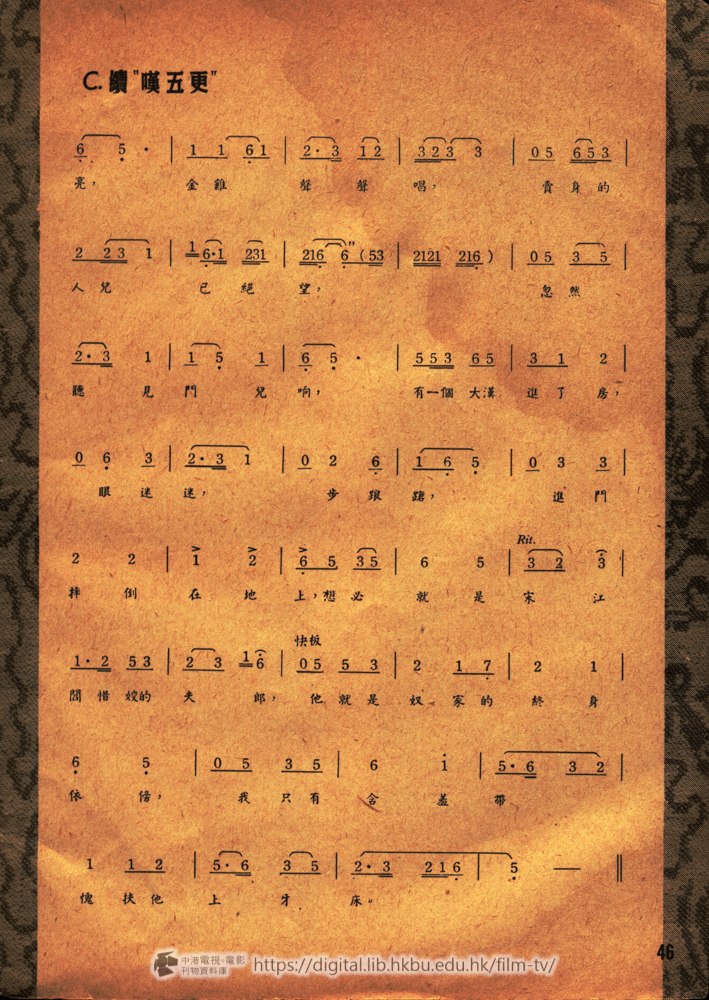 C. 續“嘆五更”
6 5 · | 1 1 6 1 | 2 · 3 1 2 | 3 2 3 3 | 0 5 6 5 3 |
亮， 金雞 聲聲 唱， 賣身的
2 2 3 1 | 1 6·1 231 | 216 6 (53 | 2121 216 ) | 0 5 3 5 |
人兒 已絕 望， 忽然
2 · 3 1 | 1 5 1 | 6 5 · | 5 5 3 6 5 | 3 1 2 |
聽見 門兒 响， 有一個大漢 進了房，
0 6 3 | 2 · 3 1 | 0 2 6 | 1 6 5 | 0 3 3 |
眼迷 迷， 步踉 蹌， 進門
Rit.
2 2 | 1 2 | 6 5 3 5 | 6 5 | 3 2 3 |
摔倒 在地 上，想必 就是 宋江
快板
1 · 2 5 3 | 2 3 1 6 | 0 5 5 3 | 2 1 7 | 2 1 |
閻惜姣的 夫郎， 他就是 奴家的 終身
6 5 | 0 5 3 5 | 6 1 | 5 · 6 3 2 |
依傍， 我只有 含羞 帶
1 1 2 | 5 · 6 3 5 | 2 · 3 2 1 6 | 5 — ‖
愧扶他 上牙 床。
46
中港電視·電影
刊物資料庫
https://digital.lib.hkbu.edu.hk/film-tv/